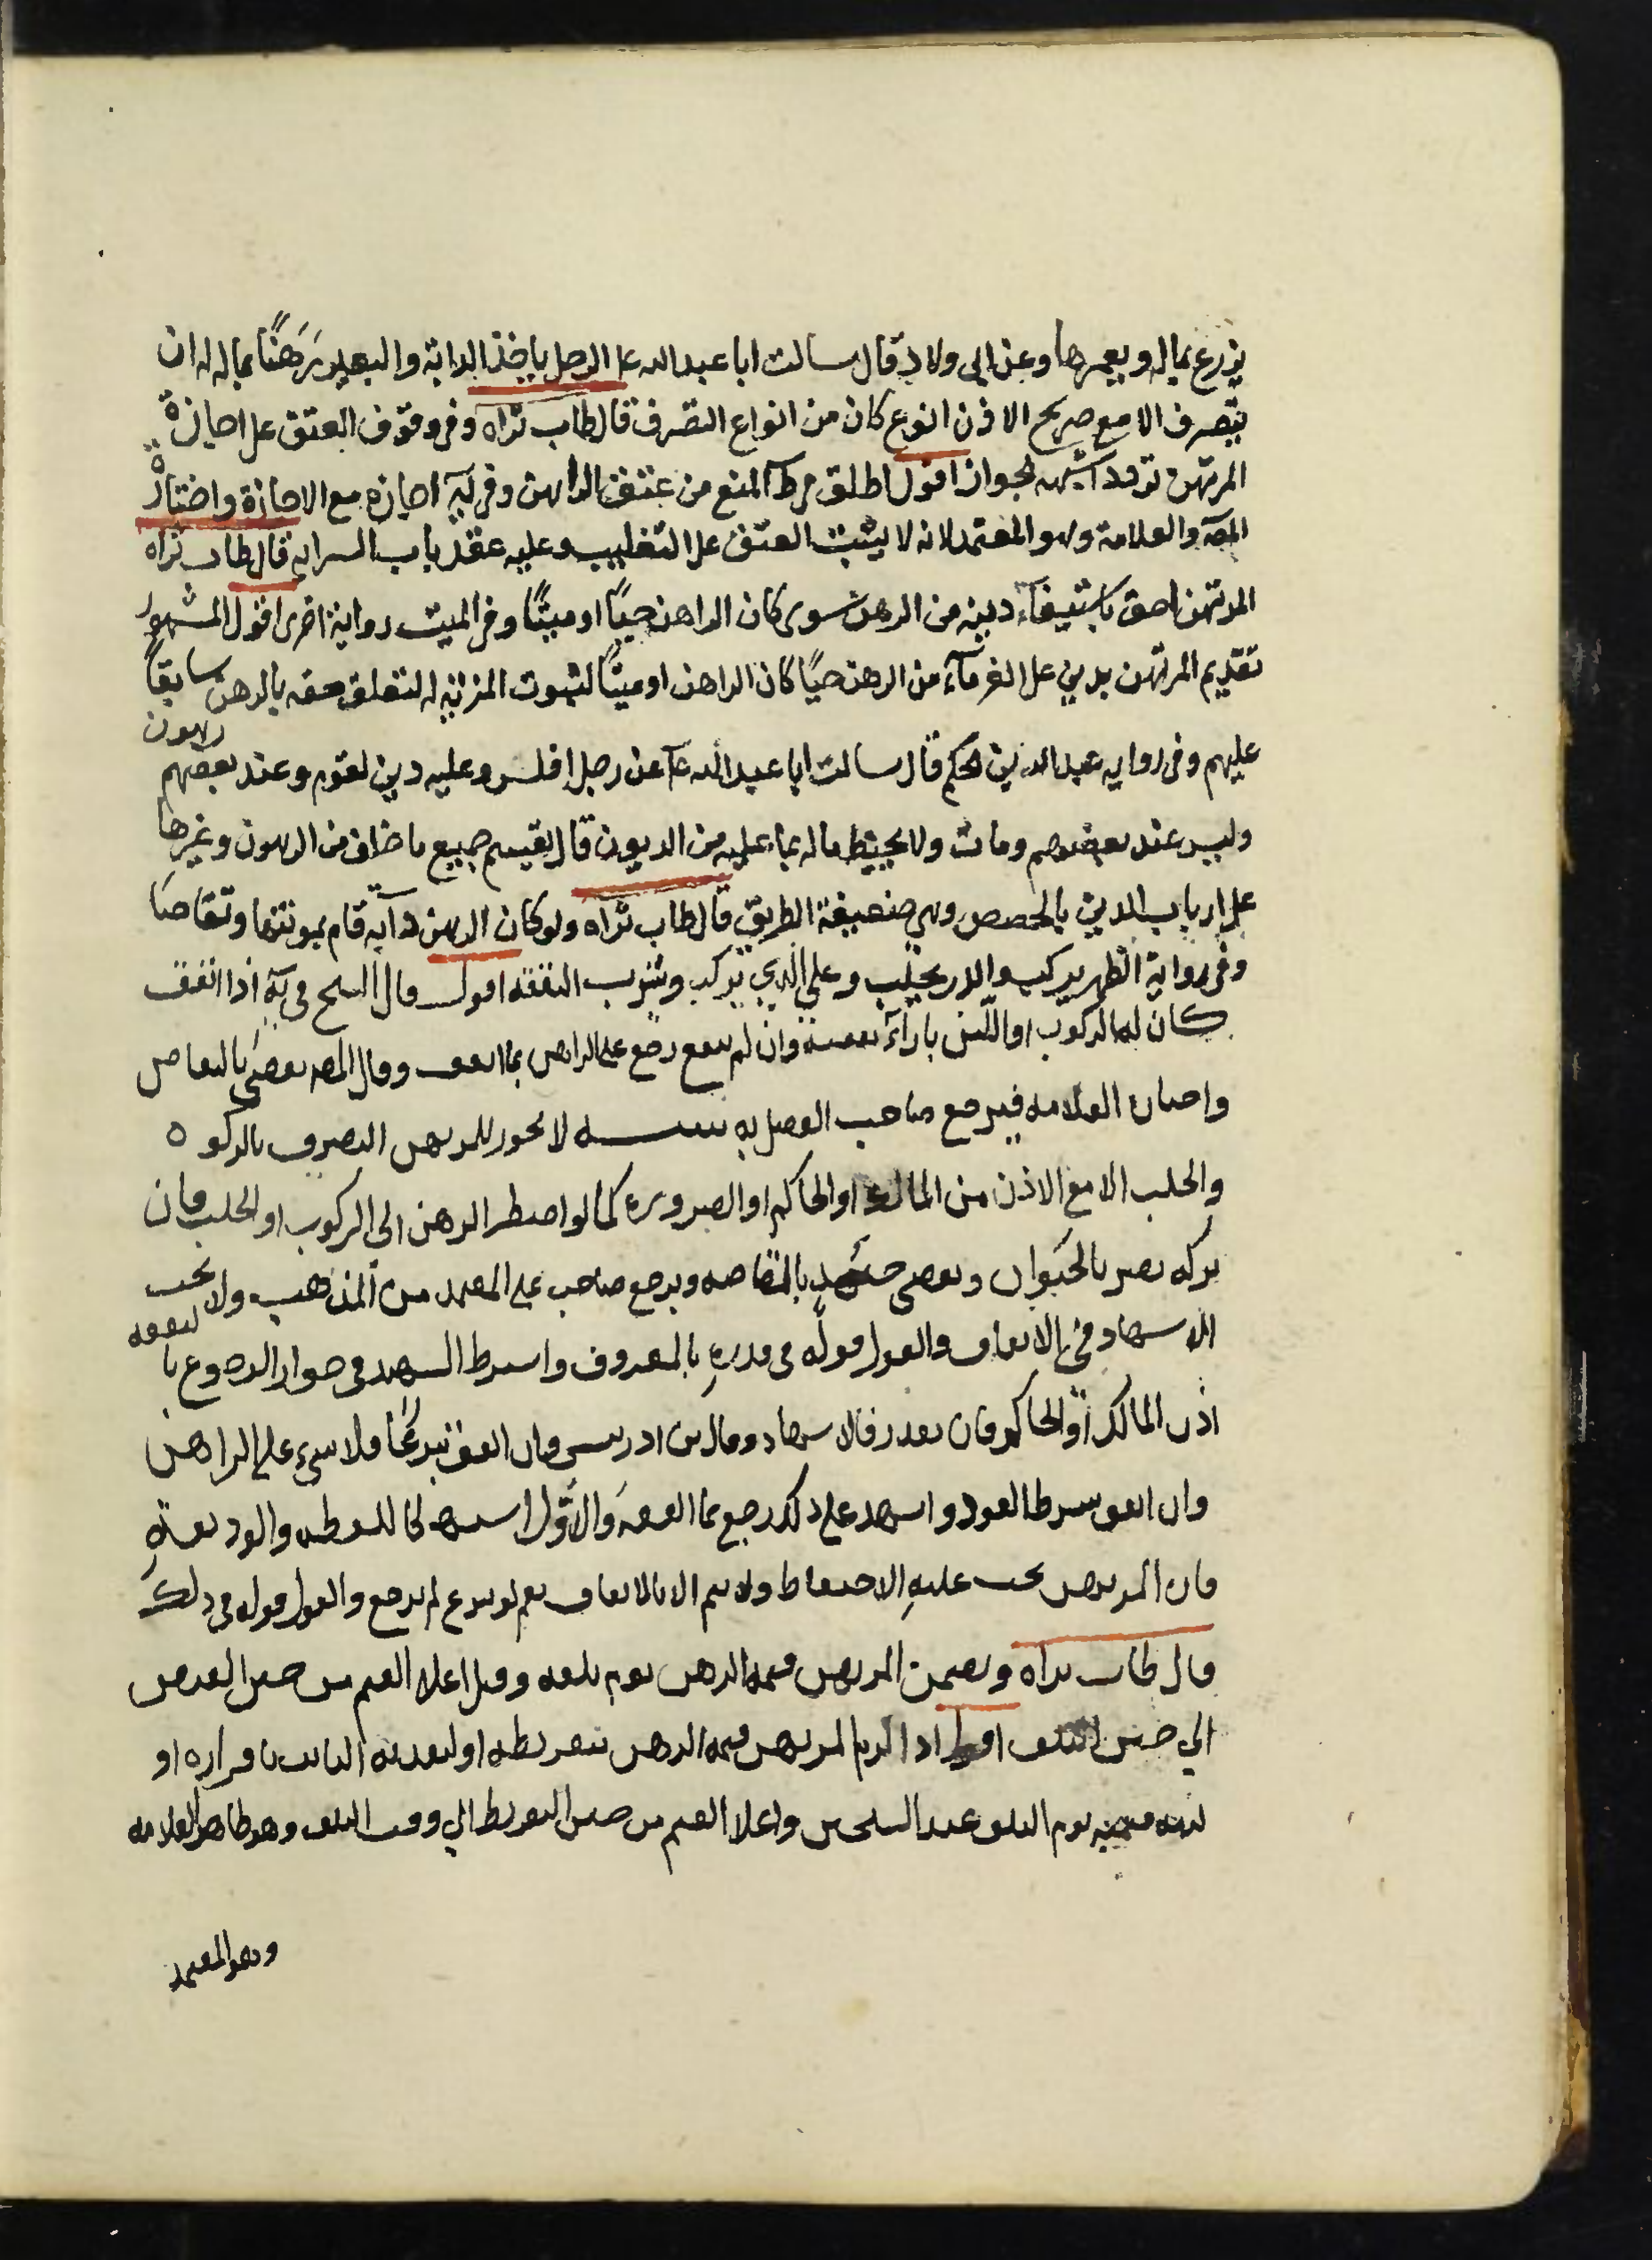 يزرع بماله ويعمرها وعن ابي ولاد قال سالت ابا عبد الله ع الرجل ياخذ الدابة والبعير رهنًا بماله له ان
يتصرف الا مع صريح الاذن انوع كان من انواع التصرف قال طاب ثراه وفي وقوف العتق على اجازة
المرتهن تردد اشبهه الجواز اقول اطلق في ط المنع من عتق الراهن وفي يه اجازه مع الاجازة واختاره
المص والعلامة وهو المعتمد لانه لا يثبت العتق على التغليب وعليه عقد باب السراية قال طاب ثراه
المرتهن احق باستيفاء دينه من الرهن سوى كان الراهن حيًا او ميتًا وفي الميت رواية اخرى اقول المشهور
تقديم المرتهن بدينه على الغرماء من الرهن حيًا كان الراهن او ميتًا لثبوت المزية له لتعلق حقه بالرهن سابقًا
عليهم وفي رواية عبد الله بن الحكم قال سالت ابا عبد الله ع عن رجل افلس وعليه دين لقوم وعند بعضهم رهون
وليس عند بعضهم ومات ولا يحيط ماله بما عليه من الديون قال يقسم جميع ما خلف من الرهون وغيرها
على ارباب الدين بالحصص وهي ضعيفة الطريق قال طاب ثراه ولو كان الرهن دابة قام بمونتها وتقاصا
وفي رواية الظهر يركب والدر يحلب وعلى الذي يركب ويشرب النفقه اقول قال الشيخ في يه اذا انفق
كان له الركوب او اللبن بازاء نفقته وان لم ينتفع رجع على الراهن بما انفق وقال المص يقضي بالتقاص
واختاره العلامه فيرجع صاحب الفضل به تنبيه لا يجوز للمرتهن التصرف بالركوب
والحلب الا مع الاذن من المالك او الحاكم او الضروره كما لو اضطر الرهن الى الركوب او الحلب فان
تركه يضر بالحيوان ويقضى حينئذ بالمقاصه ويرجع صاحب على المعتمد من المذهب ولا يجب
الاشهاد في الانفاق والقول قوله في قدره بالمعروف واشترط الشهيد في جواز الرجوع بالنفقه
اذن المالك او الحاكم فان تعذر فالاشهاد وقال بن ادريس فان انفق تبرعًا فلا شيء على الراهن
وان انفق بشرط العود واشهد على ذلك رجع بما انفقه والاول اشبه كاللقطه والوديعة
فان المرتهن يجب عليه الاحتفاظ ولا يتم الا بالانفاق نعم لو تبرع لم يرجع والقول قوله في ذلك
قال طاب ثراه ويضمن المرتهن قيمه الرهن يوم تلفه وقيل اعلا القيم من حين القبض
الى حين التلف اقول اذا الزم المرتهن قيمه الرهن بتفريطه او لتعديه الثابت باقراره او
لزمه قيمته يوم التلف عند الشيخين واعلا القيم من حين التفريط الى وقت التلف وهو ظاهر العلامه
وهو المعتمد